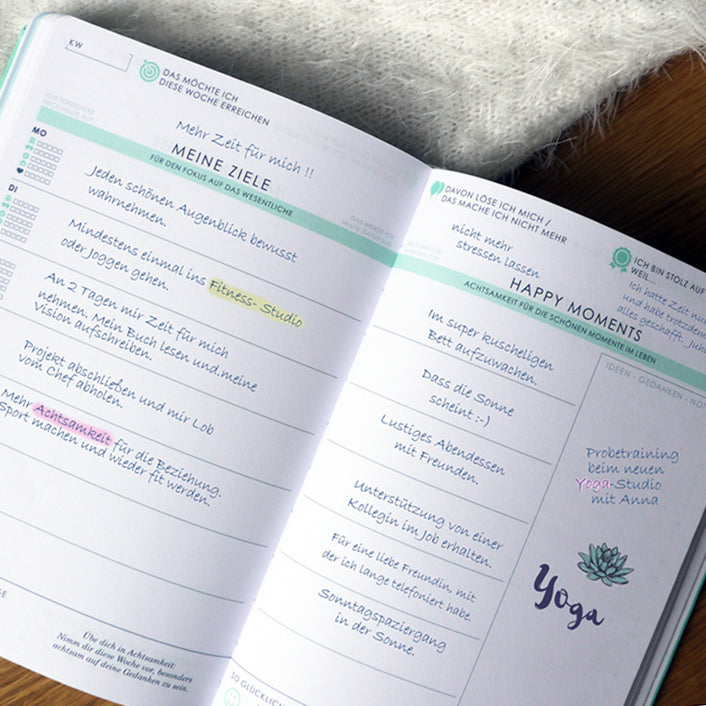 KW
DAS MÖCHTE ICH
DIESE WOCHE ERREICHEN
ICH FOKUSSIERE
MICH HEUTE AUF
Mehr Zeit für mich !!
MEINE ZIELE
FÜR DEN FOKUS AUF DAS WESENTLICHE
MO
DI
Jeden schönen Augenblick bewusst
wahrnehmen.
Mindestens einmal ins Fitness-Studio
oder Joggen gehen.
An 2 Tagen mir Zeit für mich
nehmen. Mein Buch lesen und meine
Vision aufschreiben.
Projekt abschließen und mir Lob
vom Chef abholen.
Mehr Achtsamkeit für die Beziehung.
Sport machen und wieder fit werden.
Übe dich in Achtsamkeit:
Nimm dir diese Woche vor, besonders
achtsam auf deine Gedanken zu sein.
DAVON LÖSE ICH MICH /
DAS MACHE ICH NICHT MEHR
nicht mehr
stressen lassen
ICH BIN STOLZ AUF
WEIL...
Ich hatte Zeit nur
und habe trotzdem
alles geschafft. Juh
HAPPY MOMENTS
ACHTSAMKEIT FÜR DIE SCHÖNEN MOMENTE IM LEBEN
Im super kuscheligen
Bett aufzuwachen.
Dass die Sonne
scheint :-)
Lustiges Abendessen
mit Freunden.
Unterstützung von einer
Kollegin im Job erhalten.
Für eine liebe Freundin, mit
der ich lange telefoniert habe.
Sonntagspaziergang
in der Sonne.
SO GLÜCKLICH
IDEEN - GEDANKEN - NO
Probetraining
beim neuen
Yoga-Studio
mit Anna
Yoga